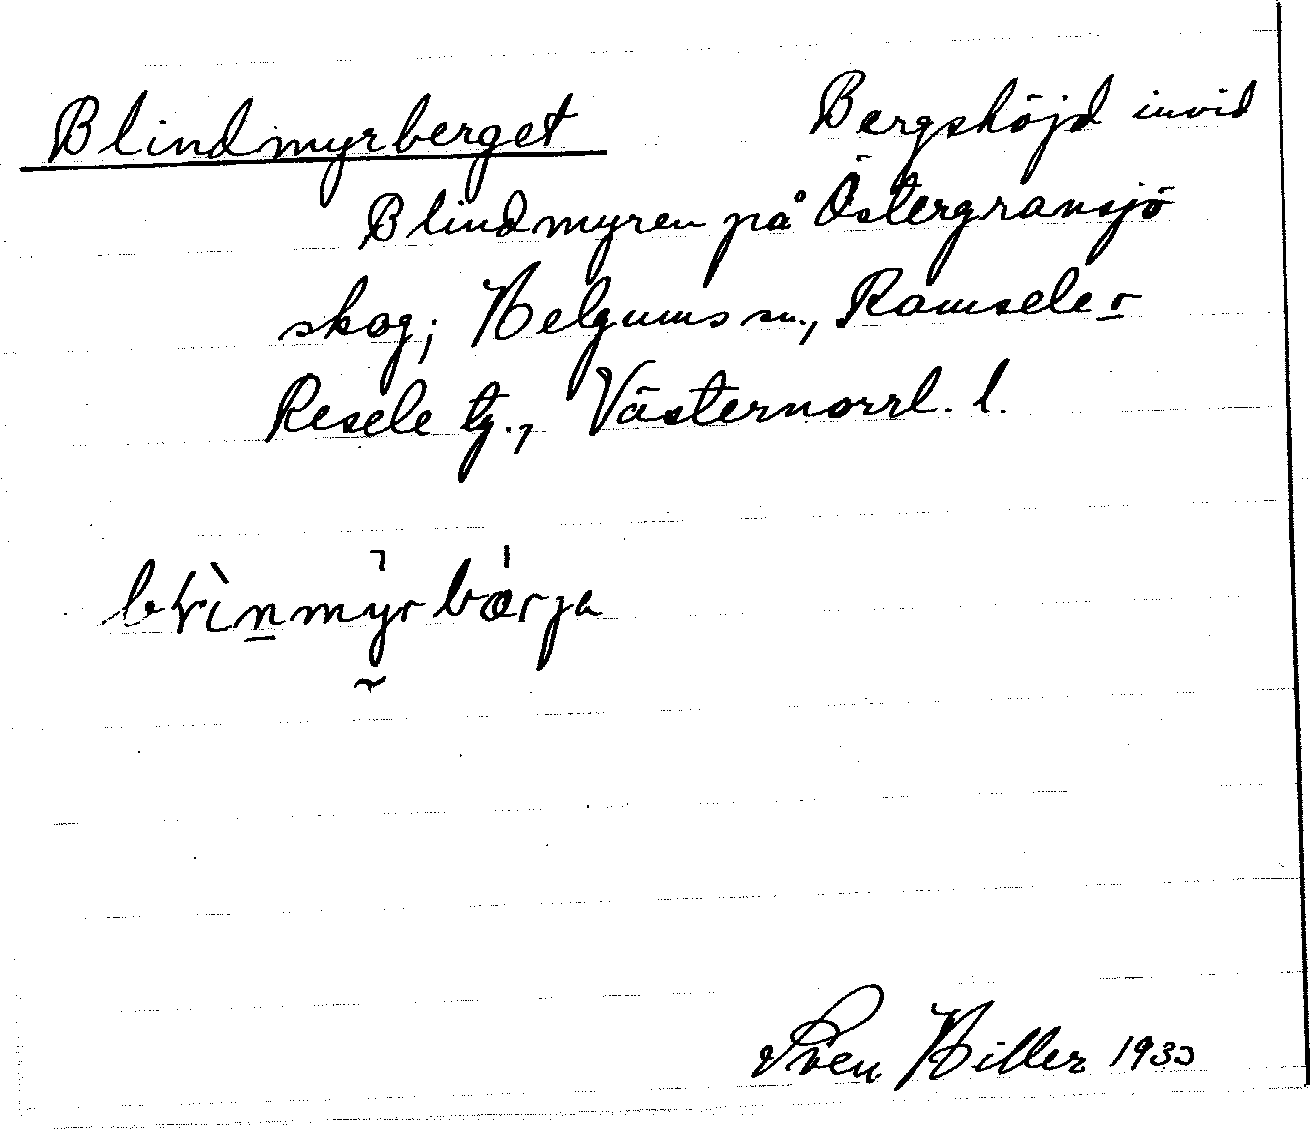 Blindmyrberget Bergshöjd invid
Blindmyren på Östergransjö
skog; Helgums sn., Ramsele o
Resele tg., Västernorrl. l.
Sven Hiller 1933